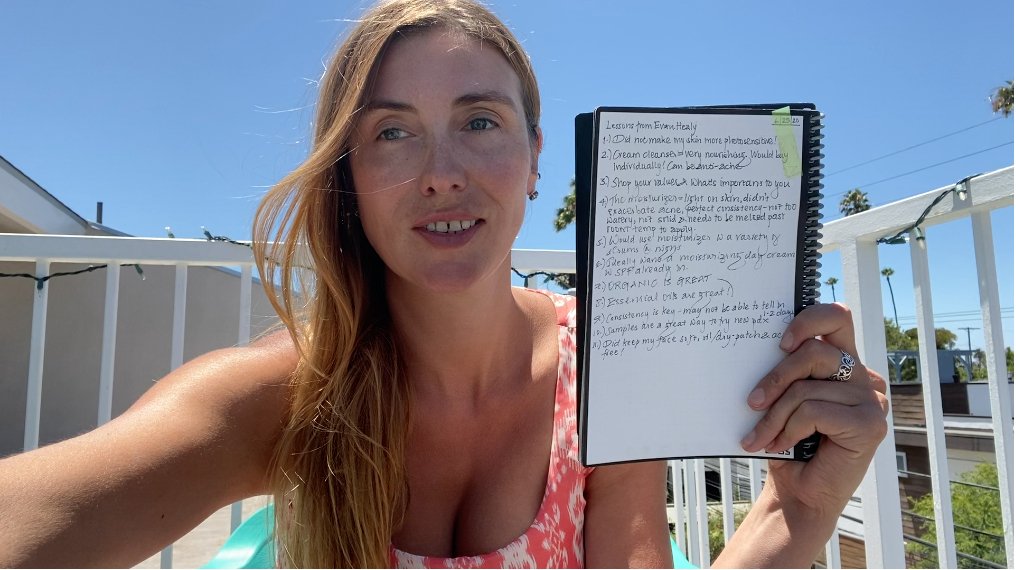 6/25/20
Lessons from Evan Healy
1.) Did not make my skin more photosensitive!
2.) Cream cleanser = very nourishing. Would buy
individually! Can be anti-acne
3.) Shop your values & whats important to you
4.) The moisturizer = light on skin, didn't
exacerbate acne, perfect consistency - not too
watery, not solid & needs to be melted past
room temp to apply.
5.) Would use moisturizer w a variety of
serums @ night
6.) Ideally want a moisturizing day cream
w SPF already in.
7.) ORGANIC IS GREAT
8.) Essential oils are great!
9.) Consistency is key - may not be able to tell in
1-2 days
10.) Samples are a great way to try new pdx
11.) Did keep my face soft, oil/dry-patch & ac
free!